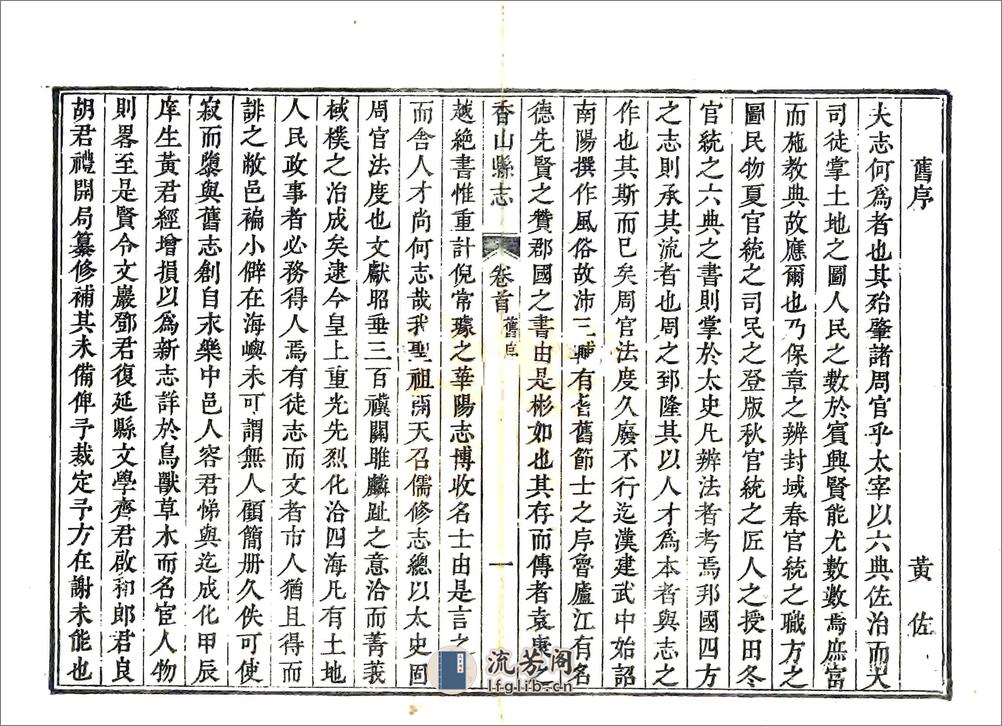 舊序 黃佐
夫志何爲者也其殆肇諸周官乎太宰以六典佐治而大
司徒掌土地之圖人民之數於賓興賢能尤數數焉庶富
而施教典故應爾也乃保章之辨封域春官統之職方之
圖民物夏官統之司民之登版秋官統之匠人之授田冬
官統之六典之書則掌於太史凡辨法者考焉邦國四方
之志則承其流者也周之郅隆其以人才爲本者與志之
作也其斯而已矣周官法度久廢不行迄漢建武中始詔
南陽撰作風俗故沛三輔有耆舊節士之序魯廬江有名
德先賢之贊郡國之書由是彬如也其存而傳者袁康之
香山縣志 卷首 舊序 一
越絶書惟重計倪常璩之華陽志博收名士由是言之
而舍人才尚何志哉我聖祖開天召儒修志總以太史固
周官法度也文獻昭垂三百禩關雎麟趾之意洽而菁莪
棫樸之治成矣逮今皇上重光先烈化洽四海凡有土地
人民政事者必務得人焉有徒志而文者市人猶且得而
誹之敝邑褊小僻在海嶼未可謂無人顧簡册久佚可使
寂而鏖與舊志創自永樂中邑人容君悌與迄成化甲辰
庠生黃君經增損以爲新志詳於鳥獸草木而名宦人物
則畧至是賢令文巖鄧君復延縣文學齊君啟和郎君良
胡君禮開局纂修補其未備俾予裁定予方在謝未能也
流芳阁
lfglib.cn